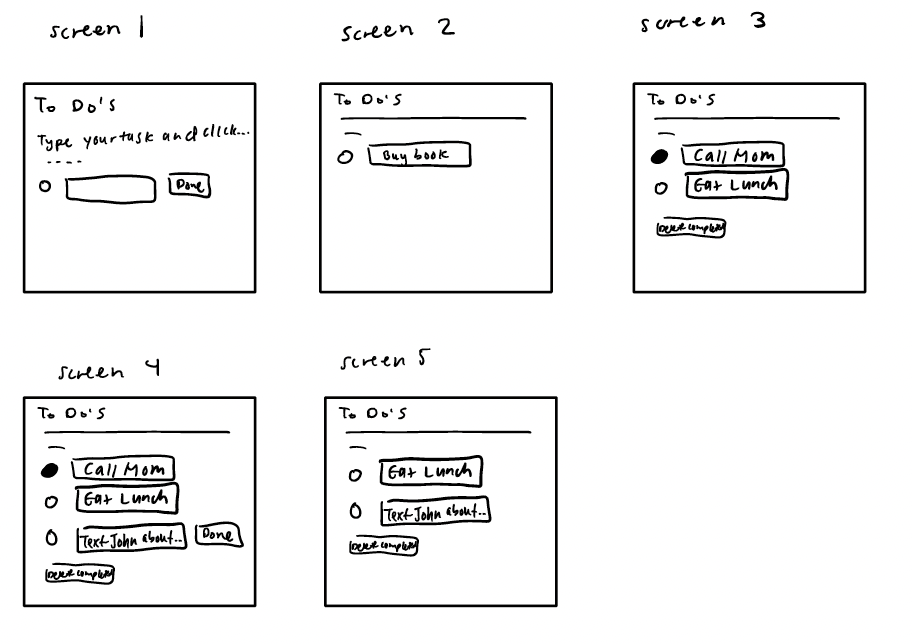 screen 1
To Do's
Type your task and click...
Done
screen 2
To Do's
Buy book
screen 3
To Do's
Call Mom
Eat Lunch
Delete completed
screen 4
To Do's
Call Mom
Eat Lunch
Text John about..
Done
Delete completed
screen 5
To Do's
Eat Lunch
Text John about..
Delete completed